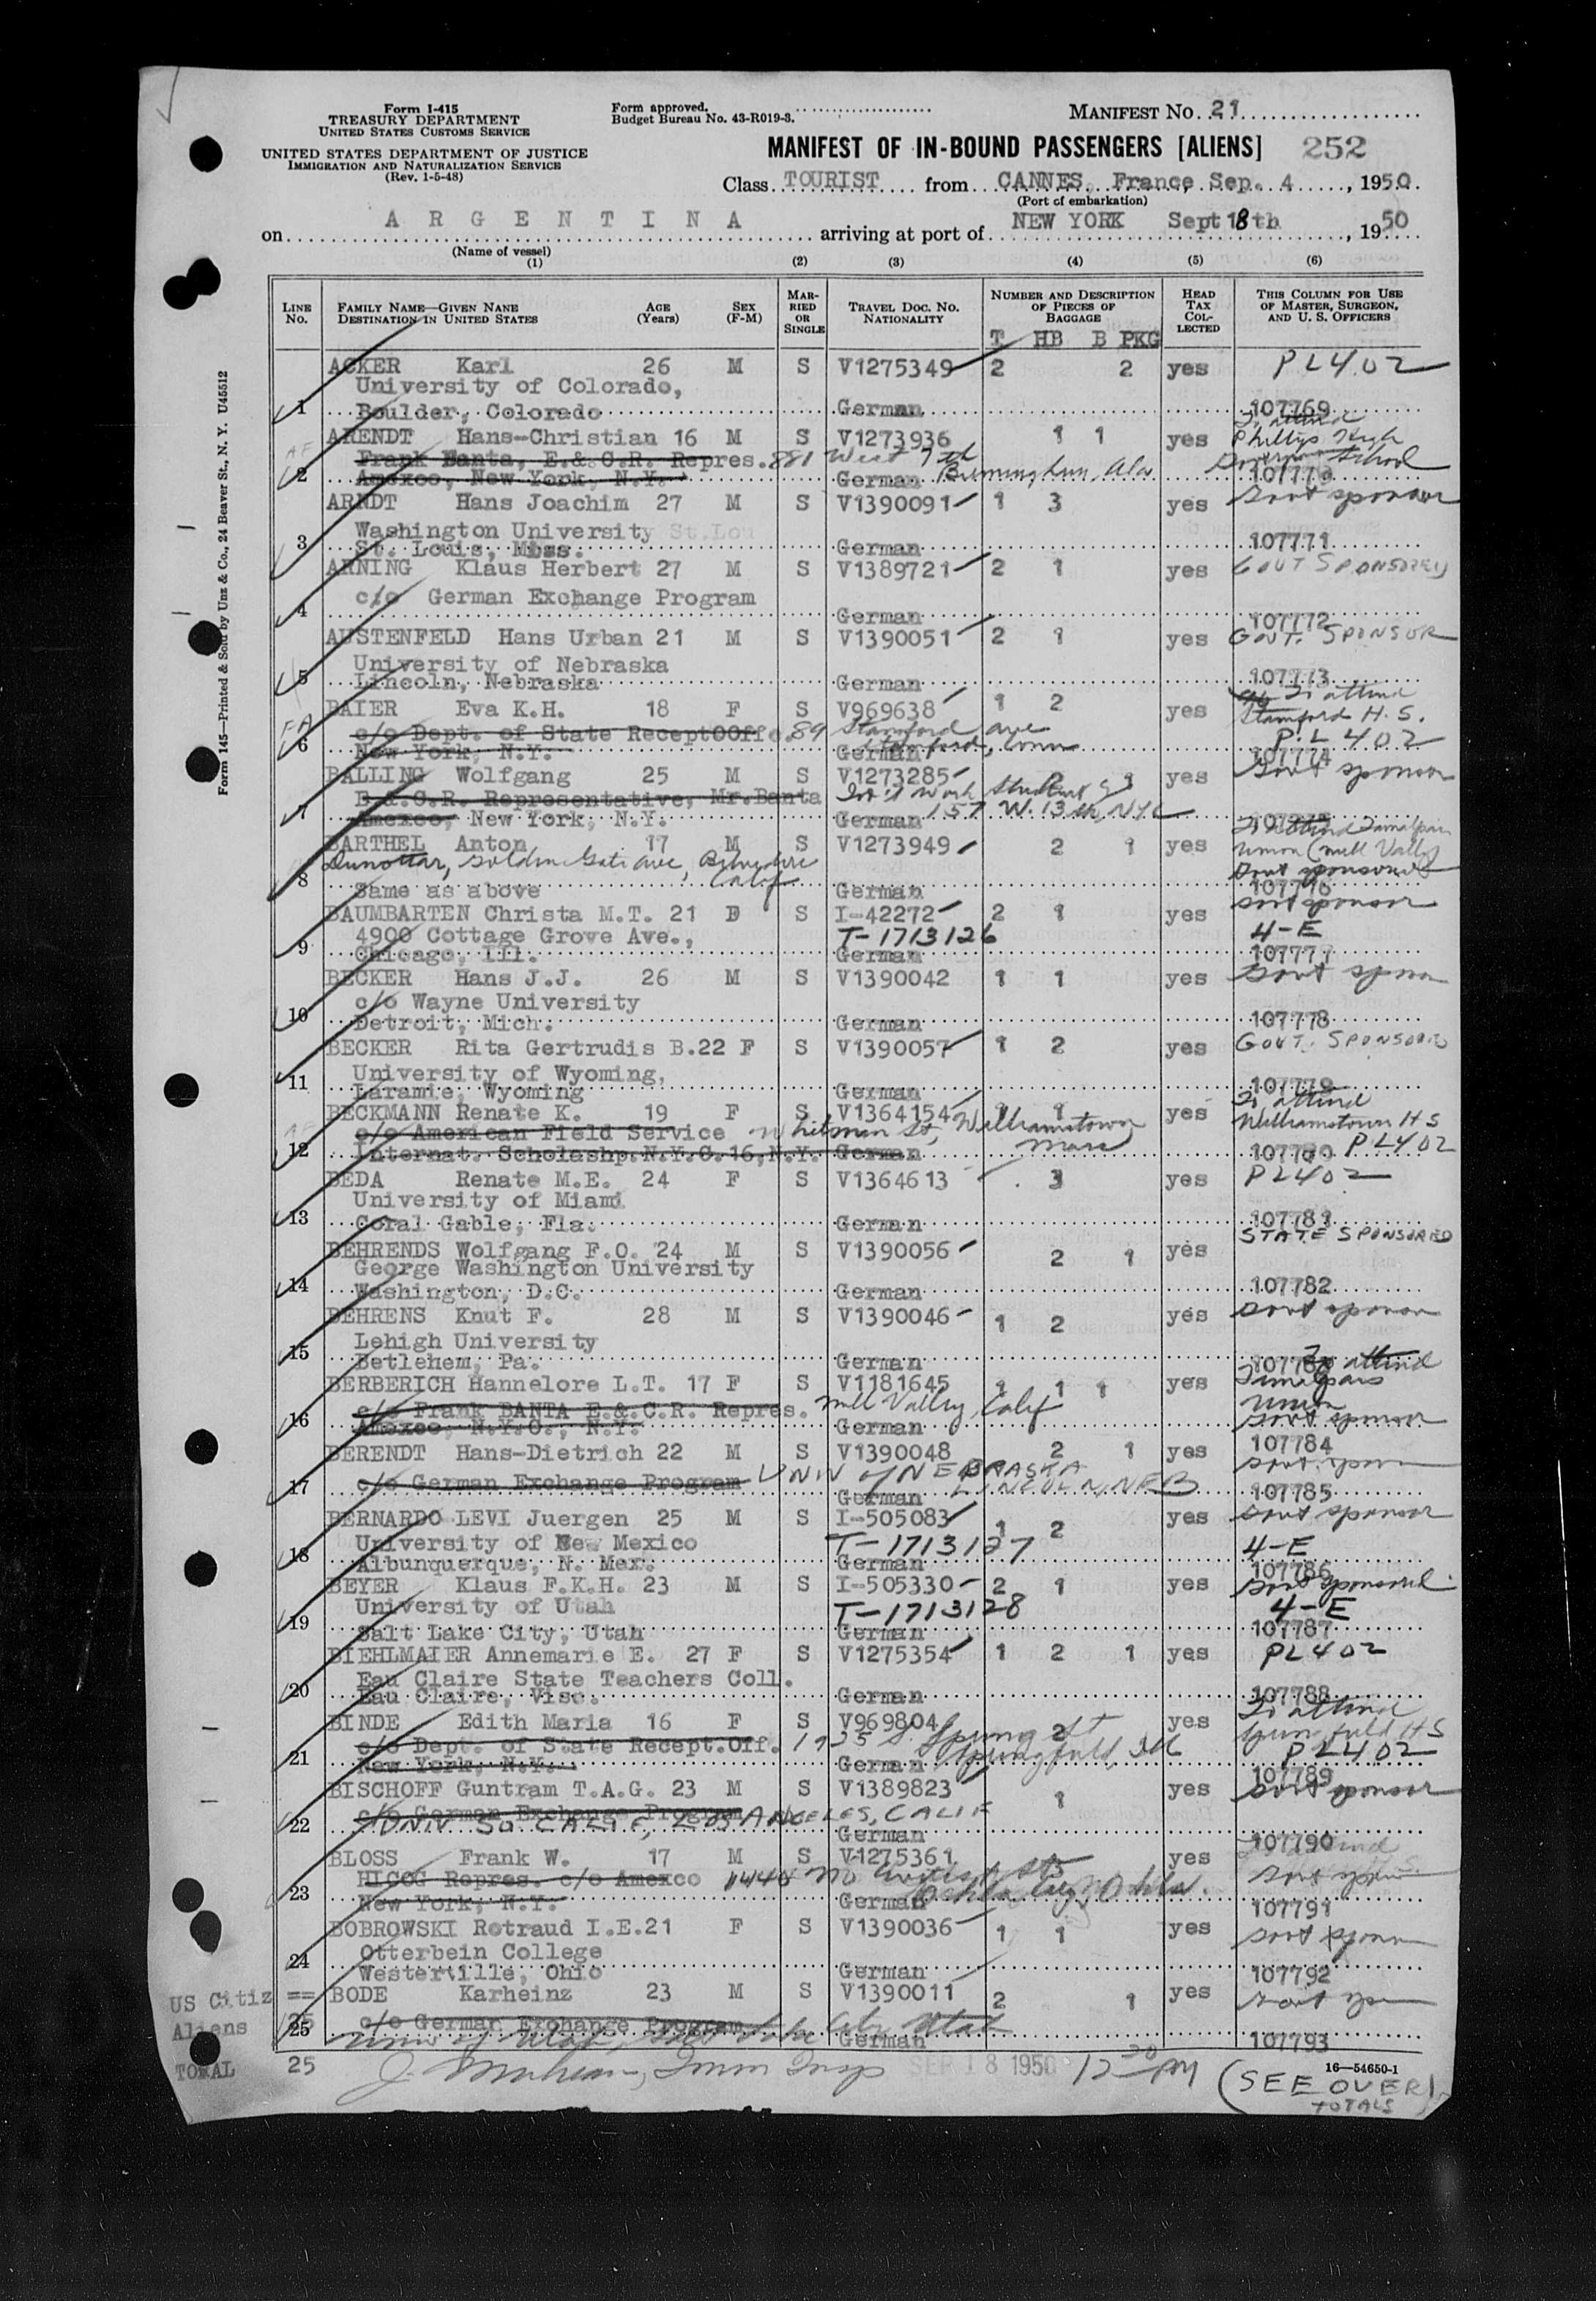 Form I-415
TREASURY DEPARTMENT
UNITED STATES CUSTOMS SERVICE
UNITED STATES DEPARTMENT OF JUSTICE
IMMIGRATION AND NATURALIZATION SERVICE
(Rev. 1-5-48)
Form approved.
Budget Bureau No. 43-R019-3.
MANIFEST No. 21
MANIFEST OF IN-BOUND PASSENGERS [ALIENS] 252
Class TOURIST from CANNES, France Sep. 4, 1950
(Port of embarkation)
on A R G E N T I N A arriving at port of NEW YORK Sept 18th, 1950
(Name of vessel)
(1) (2) (3) (4) (5) (6)
LINE No. FAMILY NAME—GIVEN NANE DESTINATION IN UNITED STATES AGE (Years) SEX (F-M) MARRIED OR SINGLE TRAVEL DOC. NO. NATIONALITY NUMBER AND DESCRIPTION OF PIECES OF BAGGAGE HEAD TAX COLLECTED THIS COLUMN FOR USE OF MASTER, SURGEON, AND U. S. OFFICERS
T HB B PKG
ACKER Karl 26 M S V1275349 2 2 yes PL402
University of Colorado,
1 Boulder, Colorado German 107769
ARENDT Hans-Christian 16 M S V1273936 1 1 yes To attend Phillips High School
Frank Banta, E.& C.R. Repres. 881 West 7th
2 Amexco, New York, N.Y. German Birmingham, Ala 107770
ARNDT Hans Joachim 27 M S V1390091 1 3 yes Govt sponsor
Washington University St.Lou
3 St. Louis, Miss. German 107771
ARNING Klaus Herbert 27 M S V1389721 2 1 yes GOVT SPONSORED
c/o German Exchange Program
4 German 107772
AUSTENFELD Hans Urban 21 M S V1390051 2 1 yes GOVT. SPONSOR
University of Nebraska
5 Lincoln, Nebraska German 107773
BAIER Eva K.H. 18 F S V969638 1 2 yes To attend Stamford H.S.
c/o Dept. of State ReceptOOffc. 89 Stamford ave P.L 402
6 New York, N.Y. German Stamford, Conn 107774
BALLING Wolfgang 25 M S V1273285 2 1 yes Govt sponsor
E.&.C.R. Representative, Mr.Banta Int'l Work Student
7 Amexco, New York, N.Y. German 157 W. 13th, NYC
BARTHEL Anton 17 M S V1273949 2 1 yes To attend Tamalpais Union (Mill Valley)
Dunottar, Golden Gate Ave, Belvedere Calif Govt sponsored
8 Same as above German 107776
BAUMBARTEN Christa M.T. 21 F S I-42272 2 1 yes Govt sponsor
4900 Cottage Grove Ave., T-1713126 4-E
9 Chicago, Ill. German 107777
BECKER Hans J.J. 26 M S V1390042 1 1 yes Govt spon
c/o Wayne University
10 Detroit, Mich. German 107778
BECKER Rita Gertrudis B.22 F S V1390057 1 2 yes GOVT. SPONSORED
University of Wyoming,
11 Laramie, Wyoming German 107779
BECKMANN Renate K. 19 F S V1364154 1 1 yes To attend Williamstown HS
c/o American Field Service Whitman St, Williamstown Mass PL402
12 Internat. Scholashp.N.Y.C.16,N.Y. German 107780
BEDA Renate M.E. 24 F S V1364613 3 yes PL402
University of Miami
13 Coral Gable, Fla. German 107781
BEHRENDS Wolfgang F.O. 24 M S V1390056 2 1 yes STATE SPONSORED
George Washington University
14 Washington, D.C. German 107782
BEHRENS Knut F. 28 M S V1390046 1 2 yes Govt sponsor
Lehigh University
15 Betlehem, Pa. German 107783
BERBERICH Hannelore L.T. 17 F S V1181645 1 1 1 yes To attend Tamalpais Union
c/o Frank BANTA E.&.C.R. Repres. Mill Valley, Calif Govt sponsor
16 Amexco, N.Y.C., N.Y. German 107784
BERENDT Hans-Dietrich 22 M S V1390048 2 1 yes Govt. spon
c/o German Exchange Program UNIV of NEBRASKA
17 German LINCOLN, NEB 107785
BERNARDO LEVI Juergen 25 M S I-505083 1 2 yes Govt sponsor
University of New Mexico T-1713127 4-E
18 Albunquerque, N. Mex. German 107786
BEYER Klaus F.K.H. 23 M S I-505330 2 1 yes Govt sponsored
University of Utah T-1713128 4-E
19 Salt Lake City, Utah German 107787
BIEHLMAIER Annemarie E. 27 F S V1275354 1 2 1 yes PL402
Eau Claire State Teachers Coll.
20 Eau Claire, Visc. German 107788
BINDE Edith Maria 16 F S V969804 2 yes To attend Springfield HS
c/o Dept. of State Recept.Off. 1925 S. Spring St PL402
21 New York, N.Y. German Springfield, Ill 107789
BISCHOFF Guntram T.A.G. 23 M S V1389823 1 yes Govt sponsor
c/o German Exchange Program
22 UNIV SO CALIF, LOS ANGELES, CALIF German 107790
BLOSS Frank W. 17 M S V1275361 yes Govt spon
HICOG Repres. c/o Amexco
23 New York, N.Y. German Okla City, Okla. 107791
BOBROWSKI Rotraud I.E.21 F S V1390036 1 1 yes Govt spon
Otterbein College
24 Westerville, Ohio German 107792
BODE Karheinz 23 M S V1390011 2 1 yes Govt spon
c/o German Exchange Program
25 Univ of Utah, Salt Lake City Utah German 107793
US Citiz ==
Aliens 25
TOTAL 25
Imm Insp SEP 18 1950 12 30 PM
16—54650-1
(SEE OVER)
TOTALS
Form 145—Printed & Sold by Unz & Co., 24 Beaver St., N. Y. U45512